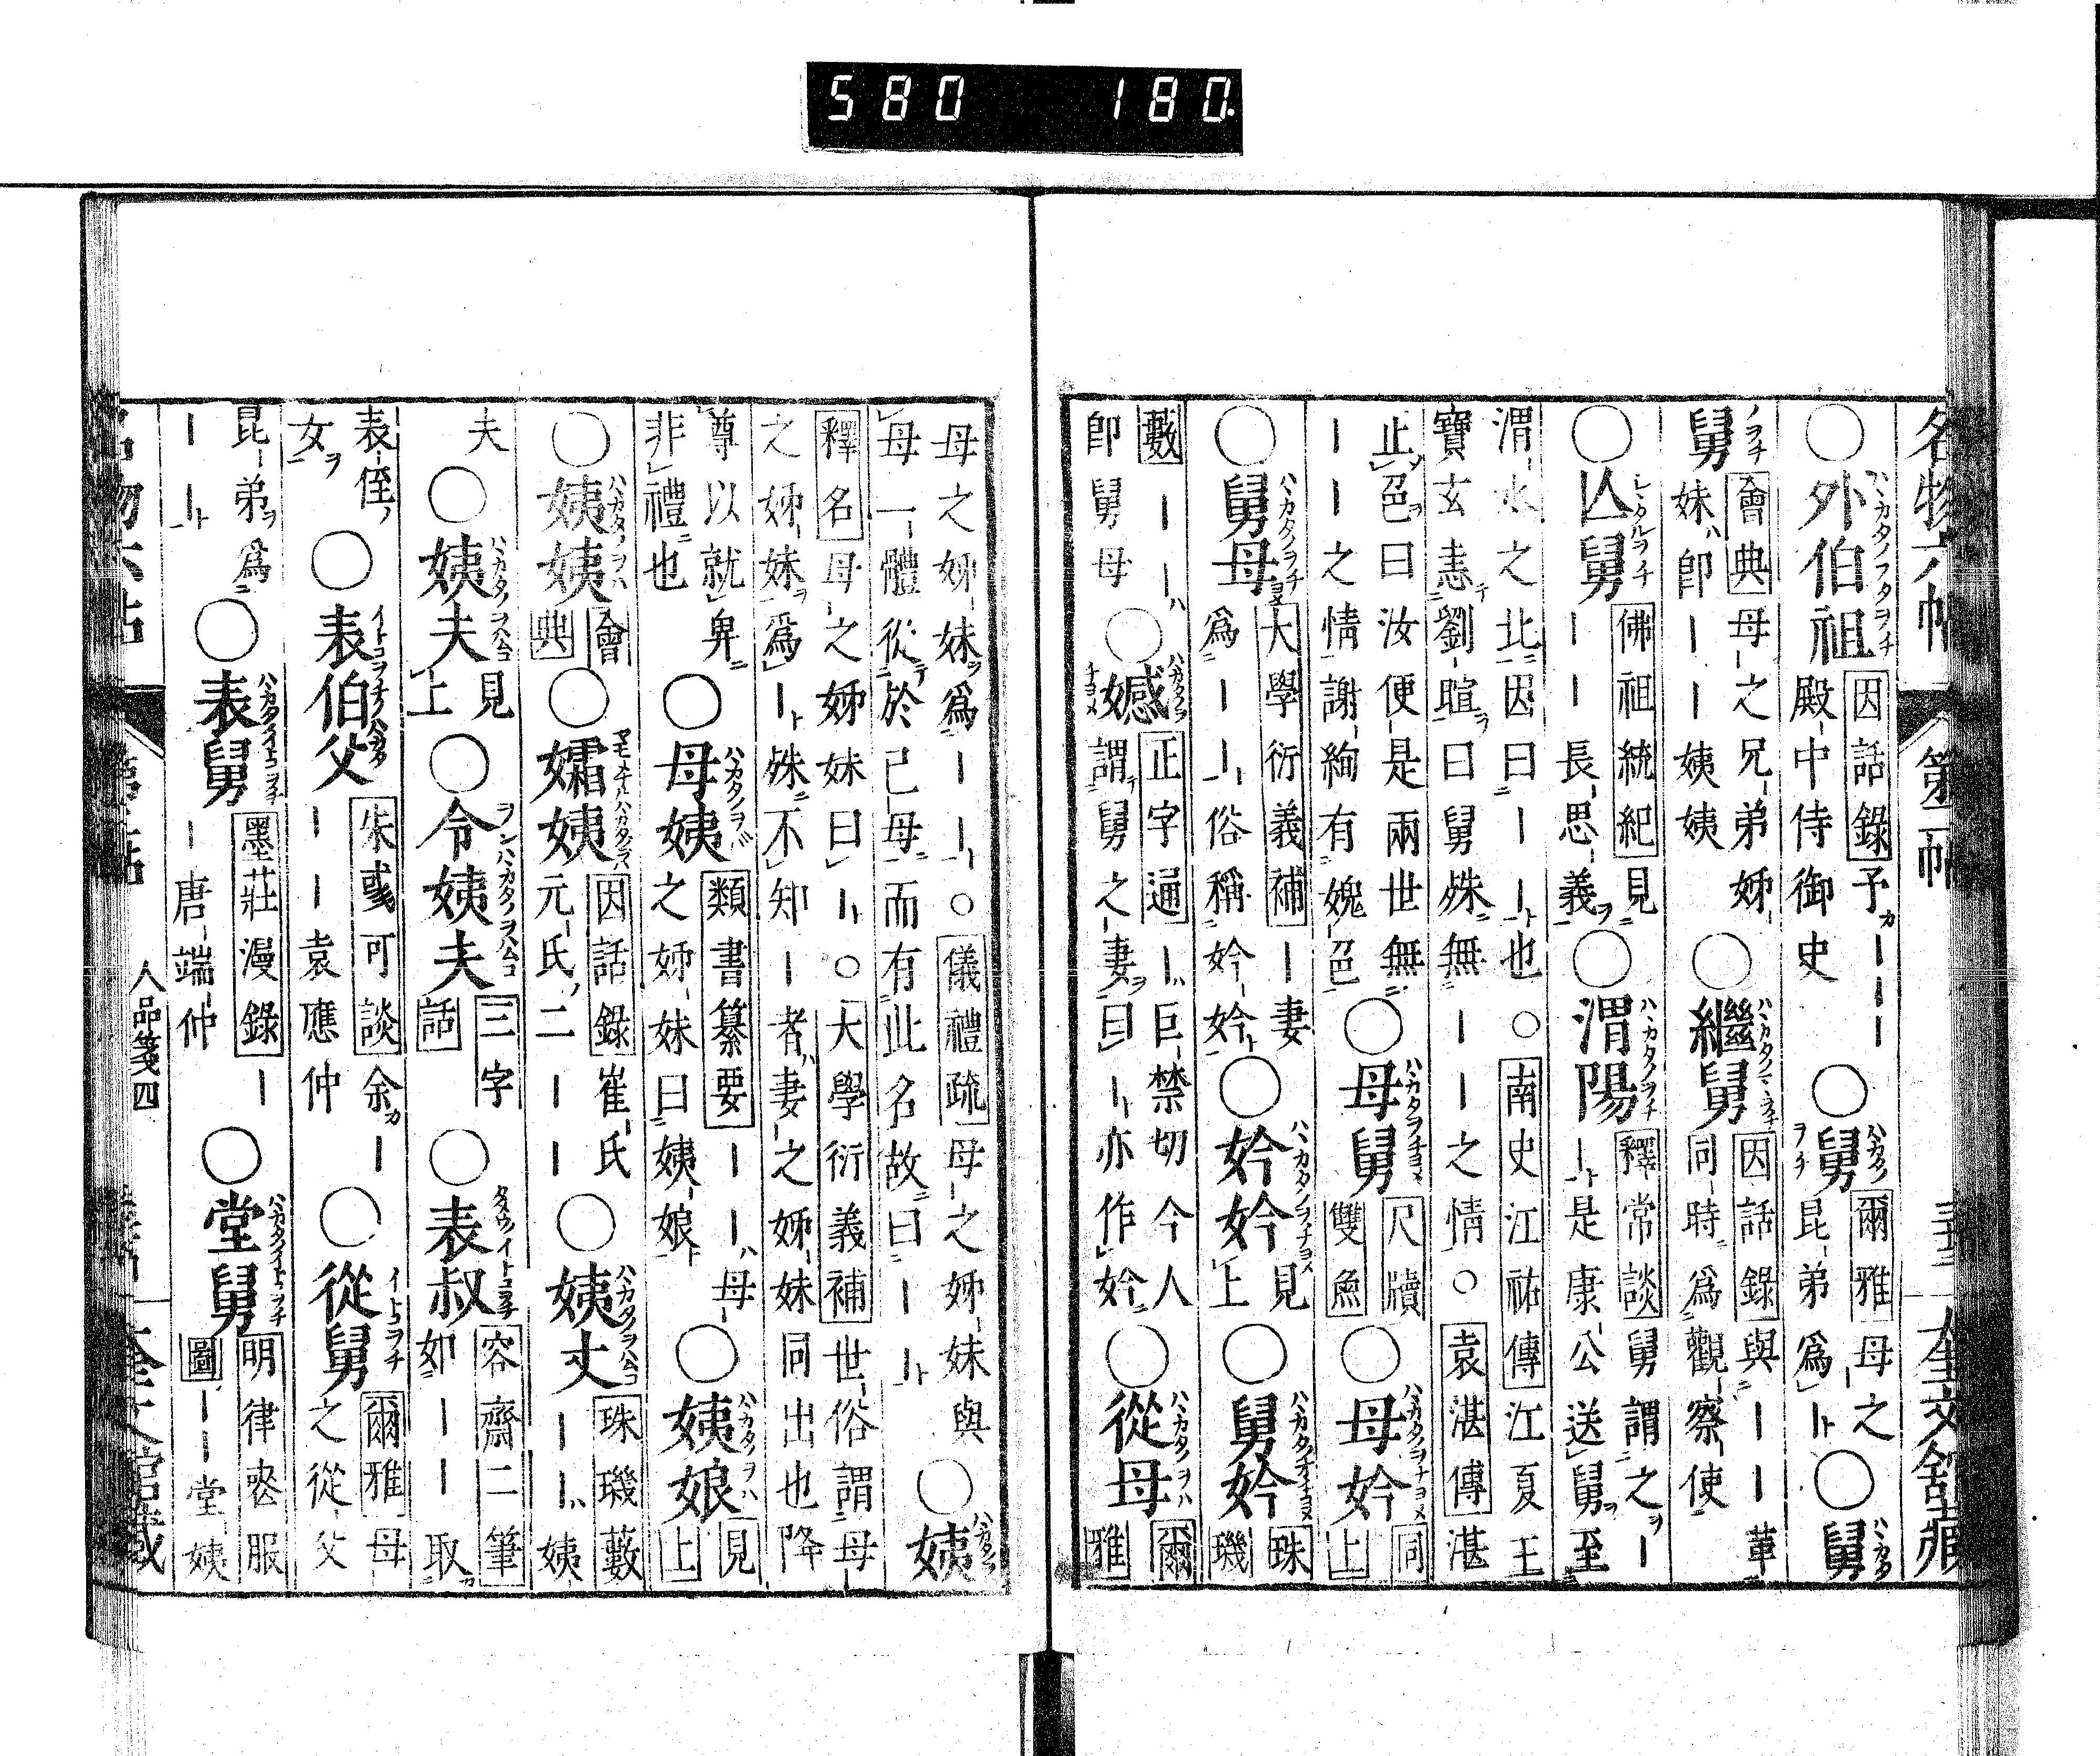 580 180
名物六帖 第二帖 奎文舘藏
○外伯祖 因話錄予カ――― 殿中侍御史 ○舅 爾雅母之 昆弟爲―ト ○舅
ノヲチ 會典母之兄弟姊 妹ハ即――姨姨 ○繼舅 因話錄與――葦 同時爲觀察使
○亾舅 佛祖統紀見 ――長思義 ○渭陽 釋常談舅謂之― ―是康公送舅至
渭水之北因曰――也○南史江祐傳江夏王
寶玄恚劉暄曰舅殊無――之情○袁湛傳湛
止絕曰汝便是兩世無 ――之情謝絢有媿絕 ○母舅 尺牘雙魚 ○母妗 同上
○舅母 大學衍義補―妻 爲――俗稱妗妗 ○妗妗 見上 ○舅妗 珠璣
藪――ハ 即舅母 ○㜝 正字通―巨禁切今人 謂舅之妻曰―亦作妗 ○從母 爾雅
母之姊妹爲――○儀禮疏母之姊妹與
母一體從於己母而有此名故曰―― ○姨
釋名母之姊妹曰―○大學衍義補世俗謂母
之姊妹爲―殊不知―者妻之姊妹同出也降
尊以就卑 非禮也 ○母姨 類書纂要――ハ母 之姊妹曰姨娘 ○姨娘 見上
○姨姨 會典 ○孀姨 因話錄崔氏 元氏二―― ○姨丈 珠璣藪 ――姨
夫 ○姨夫 見上 ○令姨夫 三字話 ○表叔 容齋二筆 如――取
表侄 女 ○表伯父 朱彧可談余カ― ――袁應仲 ○從舅 爾雅母 之從父
昆弟爲 ―― ○表舅 墨莊漫錄― ―唐端仲 ○堂舅 明律喪服 圖――堂姨
人品箋四